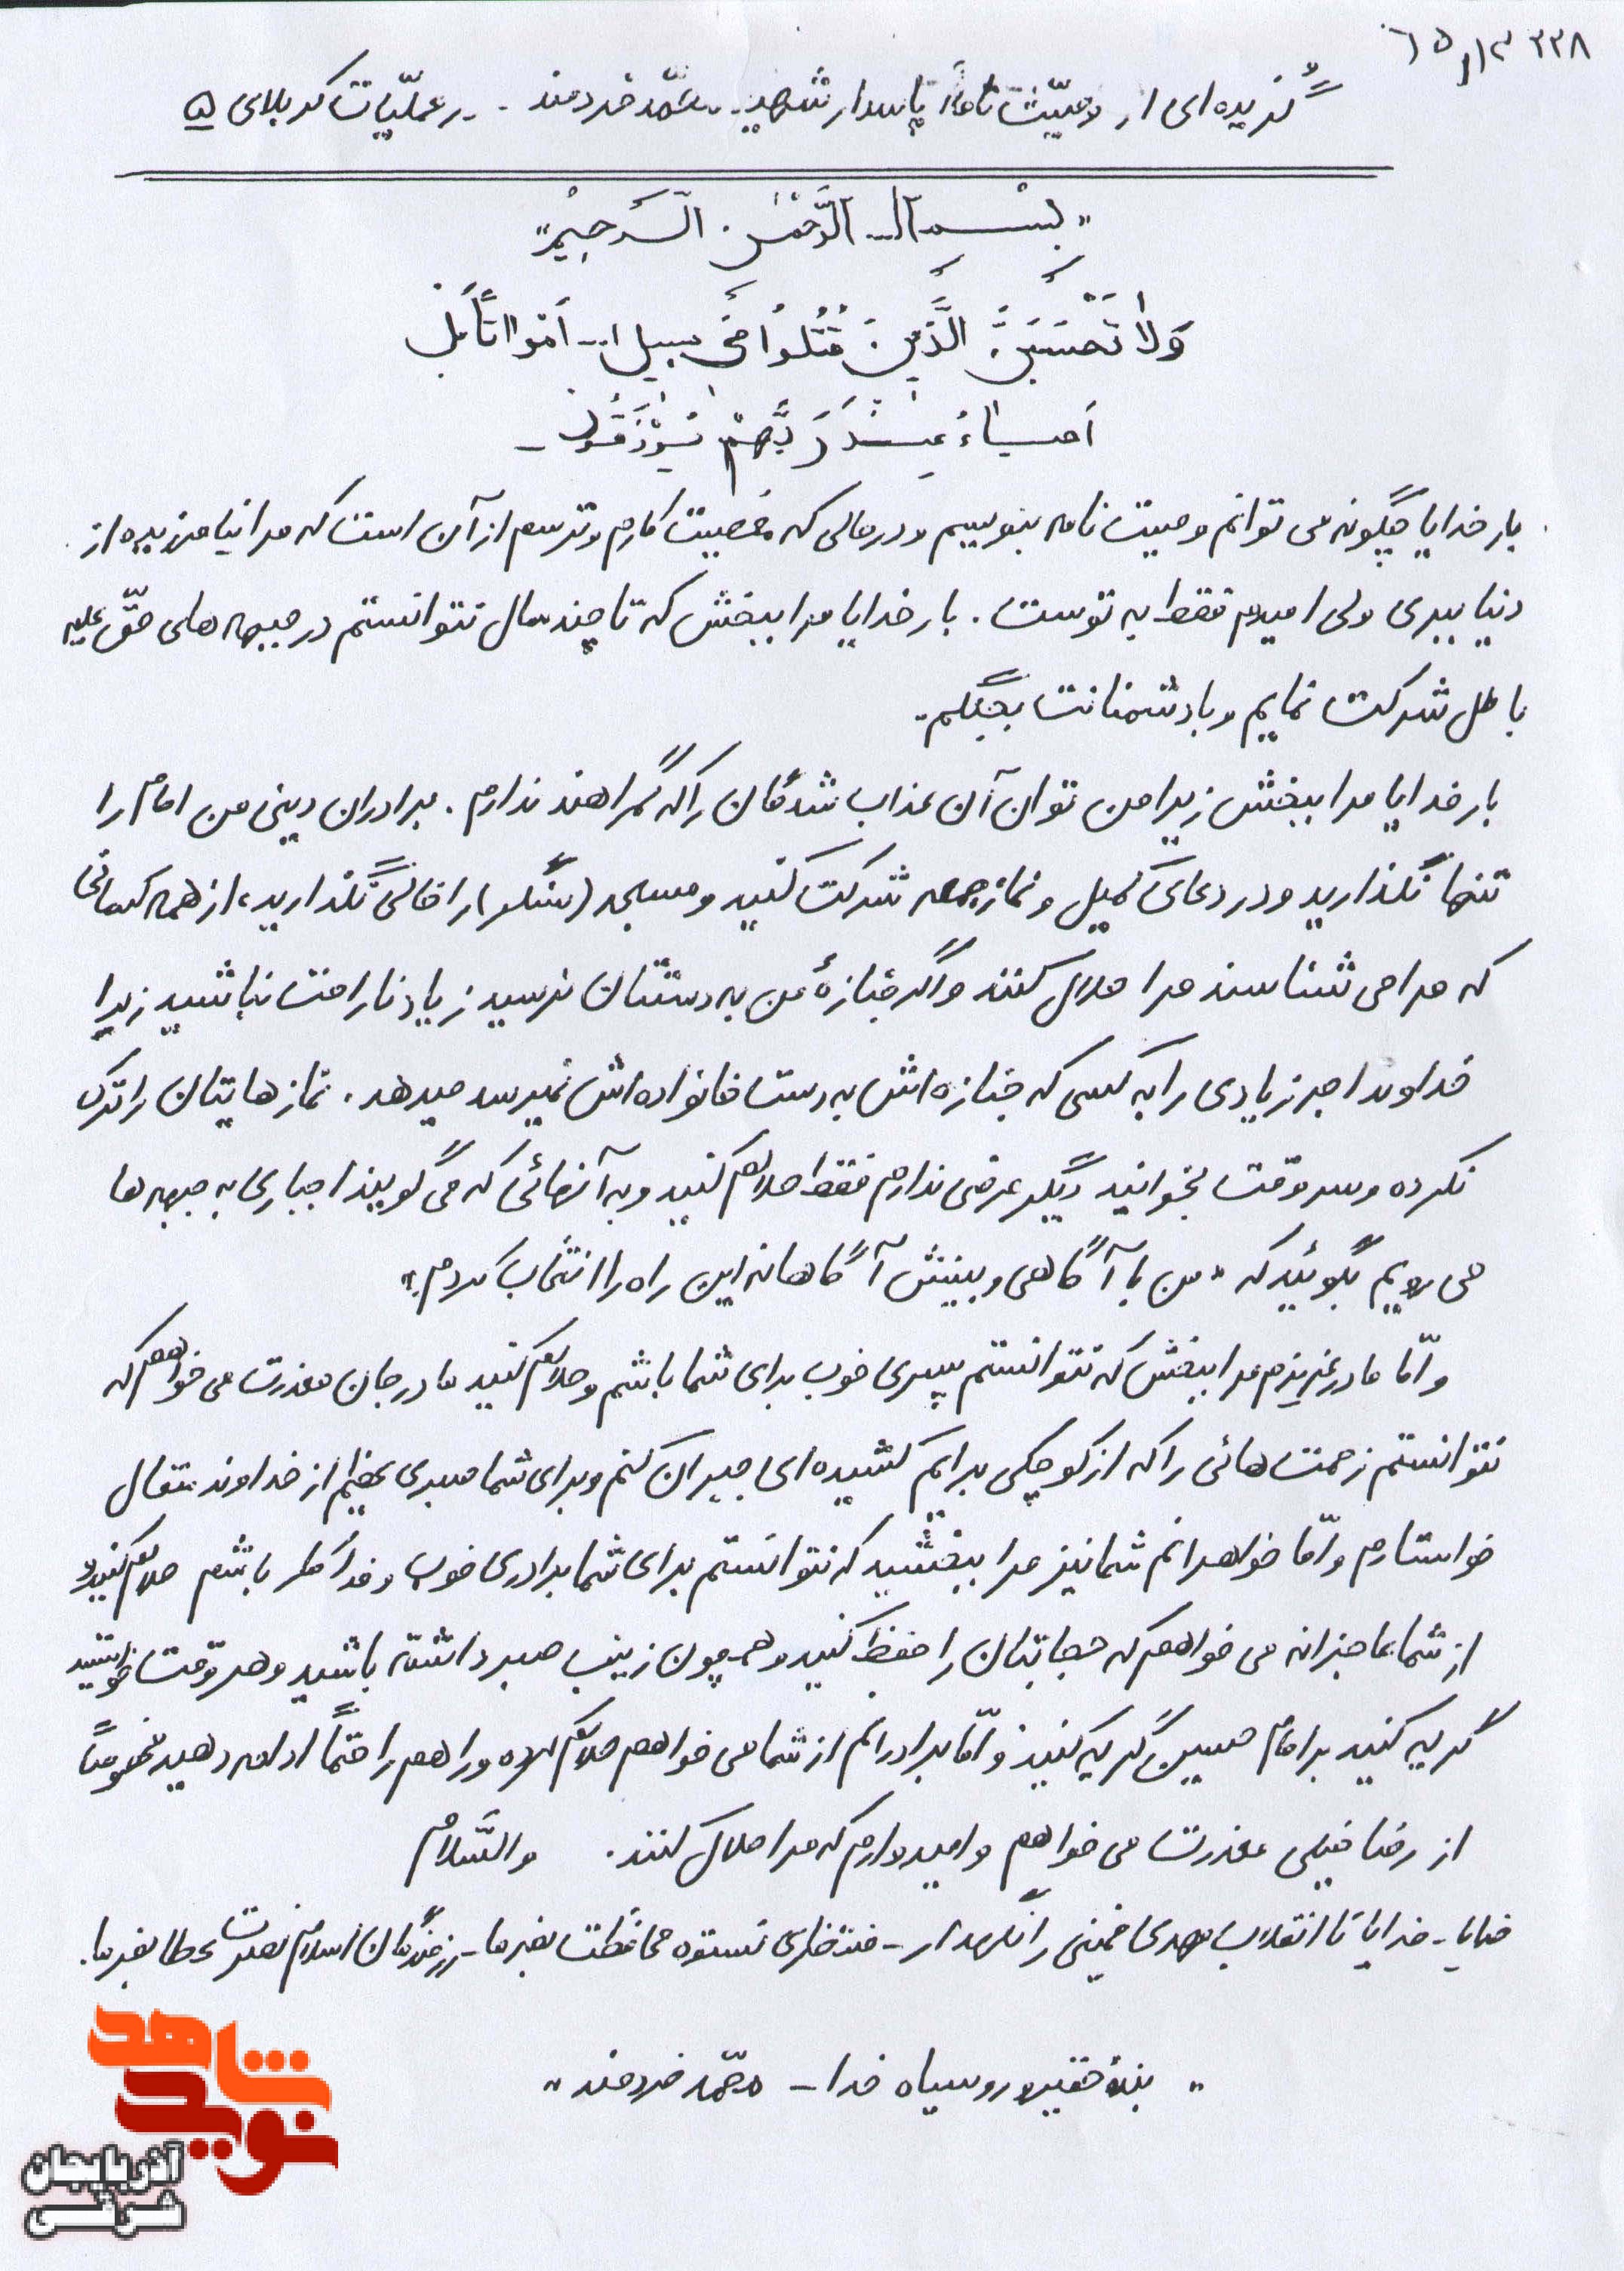 گزیده‌ای از وصیّت نامهٔ پاسدار شهید محمّد خردمند - در عملیّات کربلای ۵
«بسم الله الرَّحمن الرَّحیم»
وَلا تَحْسَبَنَّ الَّذینَ قُتِلُوا فی سبیل ا... اَمْواتاً بَلْ
اَحیاءٌ عِنْدَ رَبِّهِمْ یُرْزَقُونَ -
بار خدایا چگونه می توانم وصیت نامه بنویسم و در حالی که معصیت کارم و ترسم از آن است که مرا نیامرزیده از
دنیا ببری ولی امیدم فقط به توست. بار خدایا مرا ببخش که تا چند سال نتوانستم در جبهه های حقّ علیه
باطل شرکت نمایم و با دشمنانت بجنگم.
بار خدایا مرا ببخش زیرا من توان آن عذاب شدگان را که گمراهند ندارم. برادران دینی من امام را
تنها نگذارید و در دعای کمیل و نماز جمعه شرکت کنید و مسجد (سنگر) را خالی نگذارید، از همه کسانی
که مرا می شناسند مرا حلال کنند و اگر جنازهٔ من به دستتان نرسید زیاد ناراحت نباشید زیرا
خداوند اجر زیادی را به کسی که جنازه اش به دست خانواده اش نمیرسد میدهد. نمازهایتان را ترک
نکرده و سر وقت بخوانید دیگر عرضی ندارم فقط حلالم کنید و به آنهائی که می گویند اجباری به جبهه ها
می رویم بگوئید که «من با آگاهی و بینش آگاهانه این راه را انتخاب کردم.»
و امّا مادر عزیزم مرا ببخش که نتوانستم پسری خوب برای شما باشم و حلالم کنید مادر جان معذرت می خواهم که
نتوانستم زحمت هائی را که از کوچکی برایم کشیده ای جبران کنم و برای شما صبری عظیم از خداوند متعال
خواستارم و امّا خواهرانم شما نیز مرا ببخشید که نتوانستم برای شما برادری خوب و فداکار باشم حلالم کنید و
از شما عاجزانه می خواهم که حجابتان را حفظ کنید و همچون زینب صبر داشته باشید و هر وقت خواستید
گریه کنید بر امام حسین گریه کنید و امّا برادرانم از شما می خواهم حلالم کرده و راهم را حتماً ادامه دهید مخصوصاً
از رضا خیلی معذرت می خواهم و امیدوارم که مرا حلال کنند. والسَّلام
خدایا - خدایا تا انقلاب مهدی خمینی را نگهدار - منتظری نستوه محافظت بفرما - رزمندگان اسلام نصرت عطا بفرما.
«بندهٔ حقیر و روسیاه خدا - محمّد خردمند»
نوید شاهد
آذربایجان
شرقی